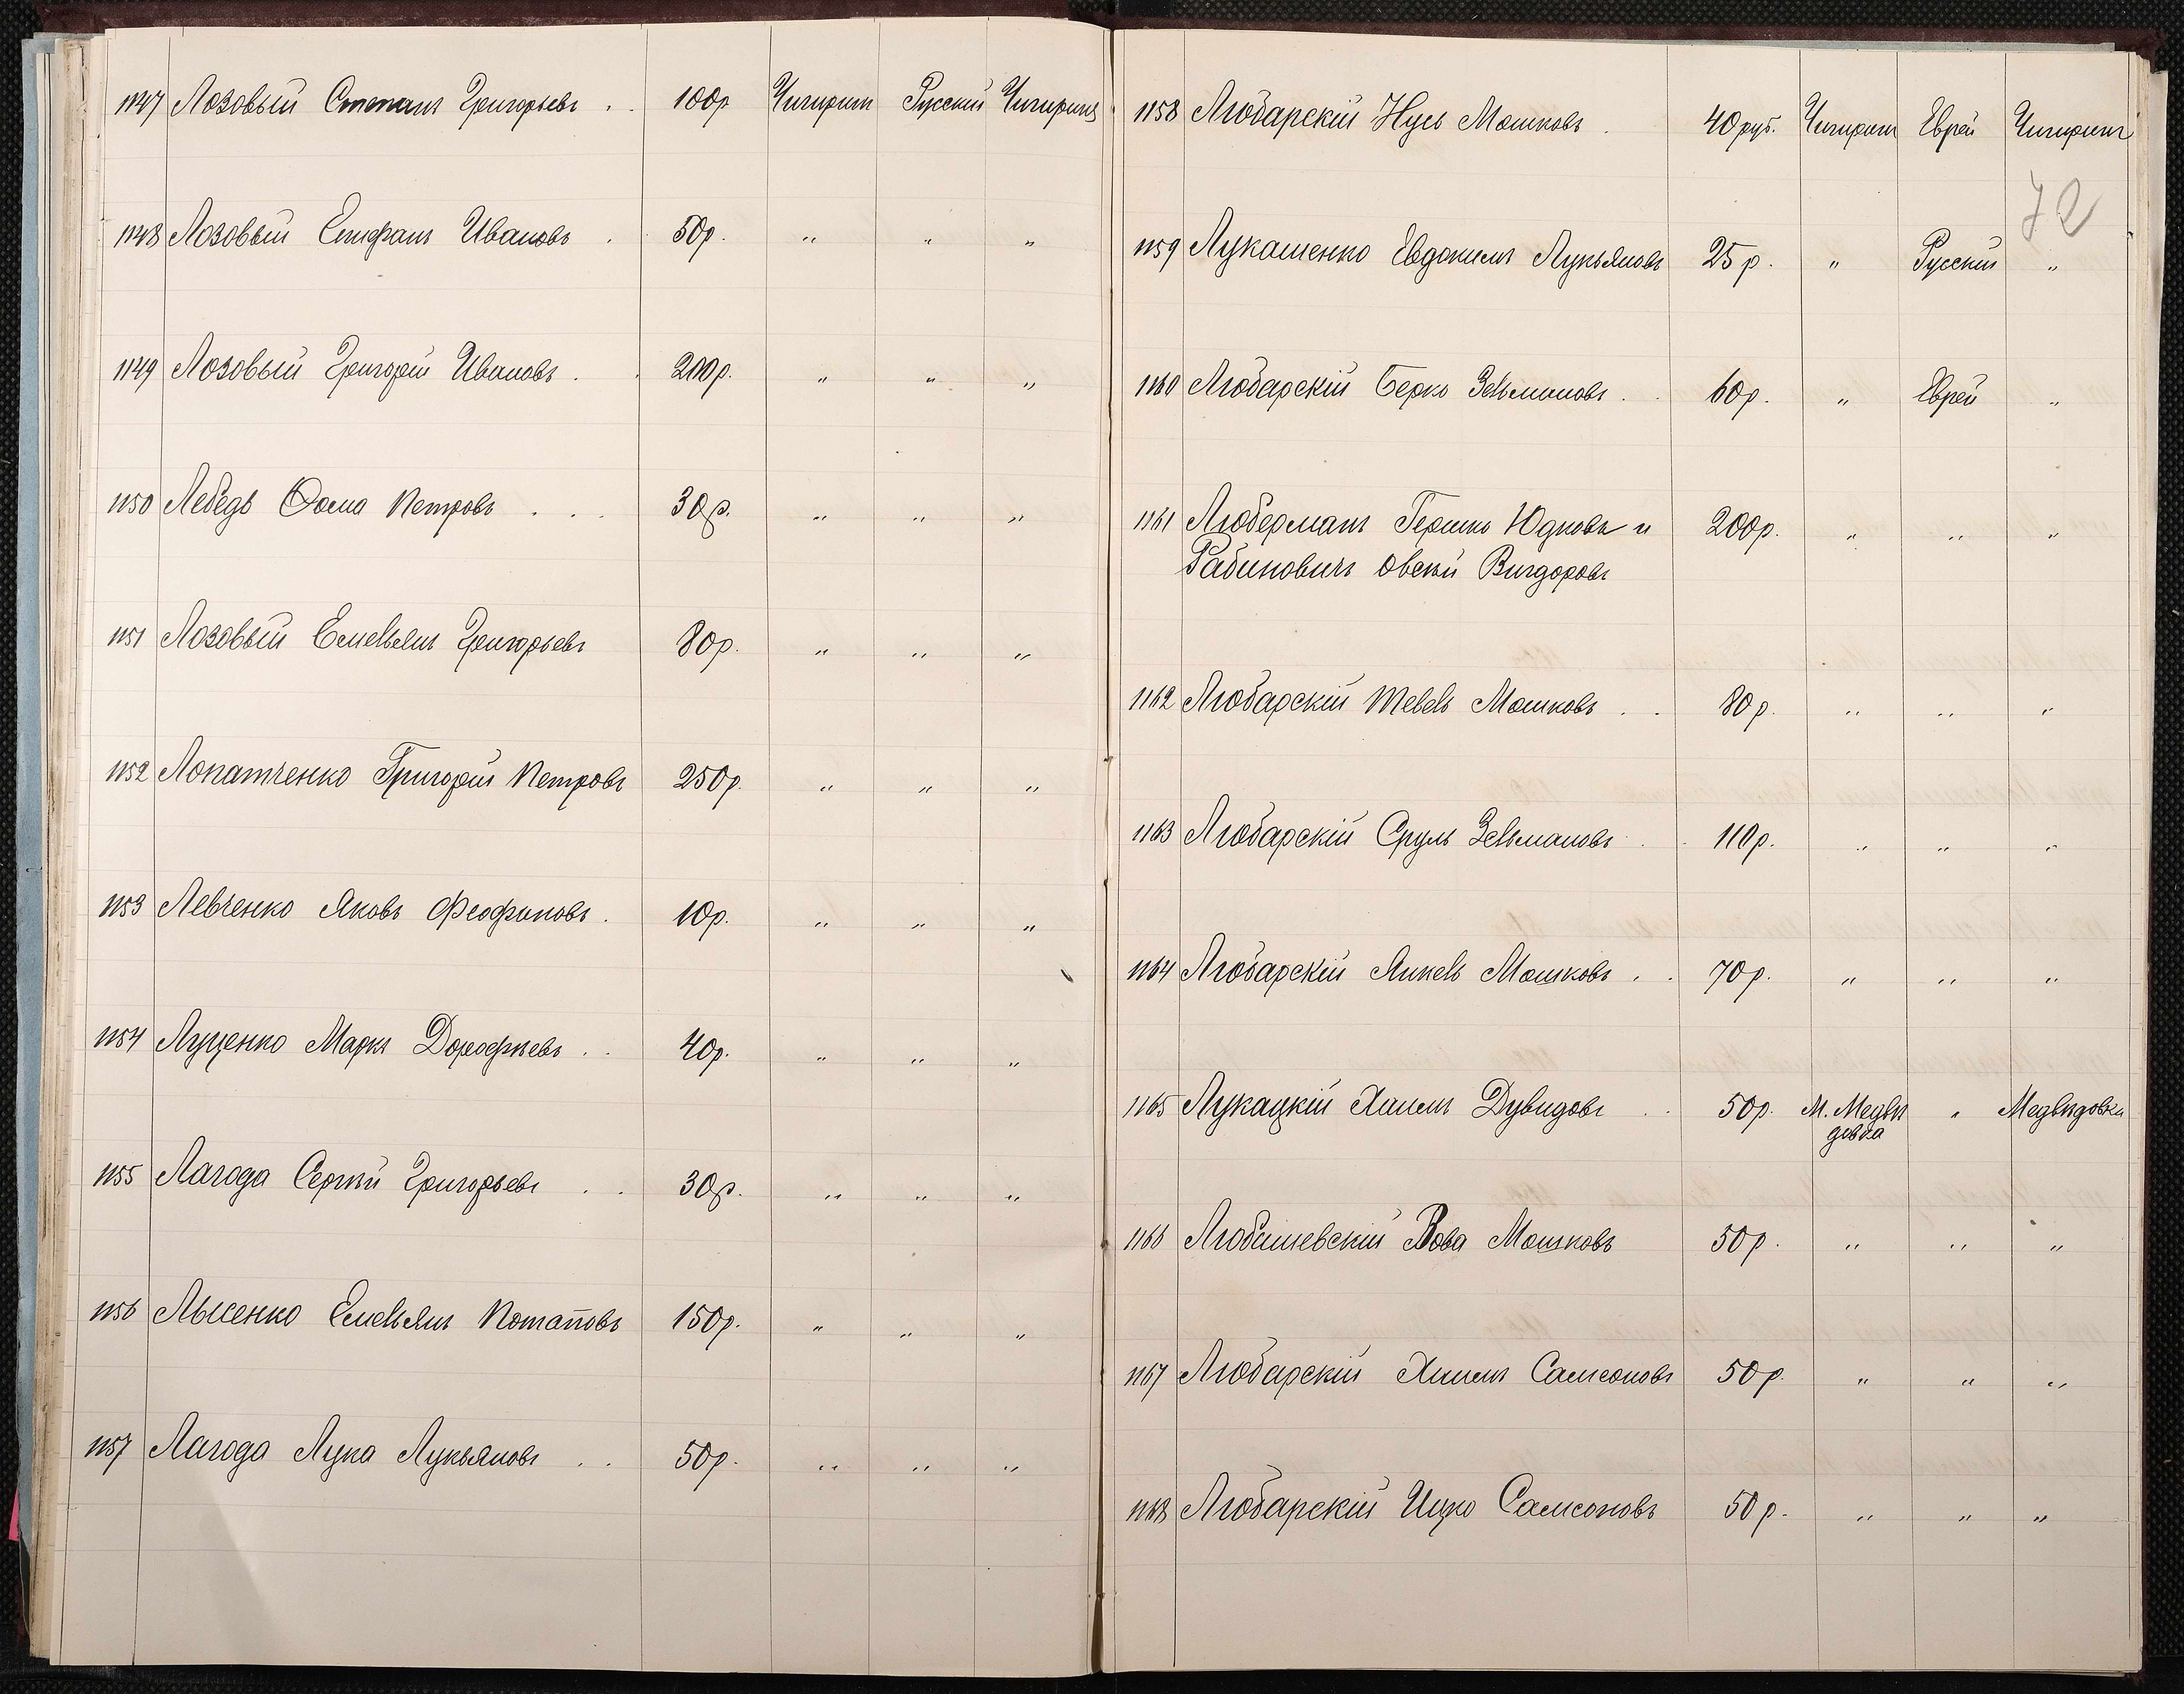 1147 Лозовый Степанъ Григорьевъ . . 100р Чигиринъ Русскій Чигиринъ
1148 Лозовый Епифанъ Ивановъ . 50р. " " "
1149 Лозовый Григорій Ивановъ . . 200р. " " "
1150 Лебедь Фома Петровъ . . . 30р. " " "
1151 Лозовый Емельянъ Григорьевъ 80р. " " "
1152 Лопатченко Григорій Петровъ 250р. " " "
1153 Левченко Яковъ Феофановъ . 10р. " " "
1154 Луценко Марко Дорофѣевъ . . 40р. " " "
1155 Лагода Сергѣй Григорьевъ . . 30р. " " "
1156 Лысенко Емельянъ Потаповъ 150р. " " "
1157 Лагода Лука Лукьяновъ . . 50р. " " "
1158 Любарскій Нусь Мошковъ . 40 руб. Чигиринъ Еврей Чигиринъ
72
1159 Лукашенко Евдокимъ Лукьяновъ 25 р. " Русскій "
1160 Любарскій Берко Зельмановъ . . 60р. " Еврей "
1161 Люберманъ Гершко Юдковъ и 200р. " " "
Рабиновичъ Овсѣй Вигдоровъ
1162 Любарскій Тевель Мошковъ . . 80р. " " "
1163 Любарскій Сруль Зельмановъ . . 110р. " " "
1164 Любарскій Янкель Мошковъ . . 70р. " " "
1165 Лукацкій Хаимъ Дувидовъ . . 50р. М. Медвѣ " Медвѣдовка
довка
1166 Любашевскій Вова Мошковъ 50р. " " "
1167 Любарскій Хаимъ Самсоновъ 50р. " " "
1168 Любарскій Ицко Самсоновъ 50р. " " "